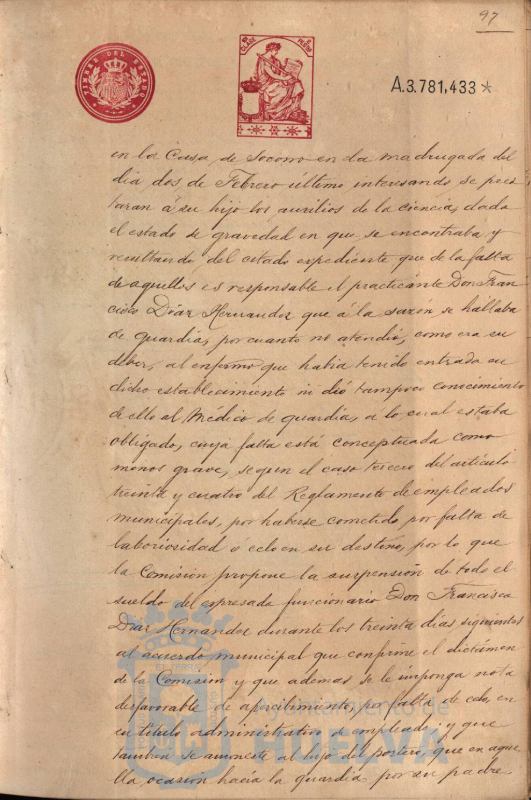 97
TIMBRE DEL ESTADO
A.3.781,433 *
en la Casa de Socorro en la madrugada del
dia dos de Febrero último interesando se pres
taran á su hijo los auxilios de la ciencia, dado
el estado de gravedad en que se encontraba y
resultando del citado expediente que de la falta
de aquellos es responsable el practicante Don Fran-
cisco Diaz Hernandez que á la sazón se hallaba
de guardia, por cuanto no atendió, como era su
deber, al enfermo que habia tenido entrada en
dicho establecimiento ni dió tampoco conocimiento
de ello al Médico de guardia, á lo cual estaba
obligado, cuya falta está conceptuada como
menos grave, segun el caso tercero del artículo
treinta y cuatro del Reglamento de empleados
municipales, por haberse cometido por falta de
laboriosidad ó celo en su destino, por lo que
la Comisión propone la suspensión de todo el
sueldo del expresado funcionario Don Francisco
Diaz Hernandez durante los treinta dias siguientes
al acuerdo municipal que confirme el dictámen
de la Comisión y que ademas se le imponga nota
desfavorable de apercibimiento, por falta de celo, en
su título administrativo de empleado; y que
tambien se amoneste al hijo del portero, que en aque
lla ocasión hacía la guardia por su padre
Ayuntamiento de
HUELVA